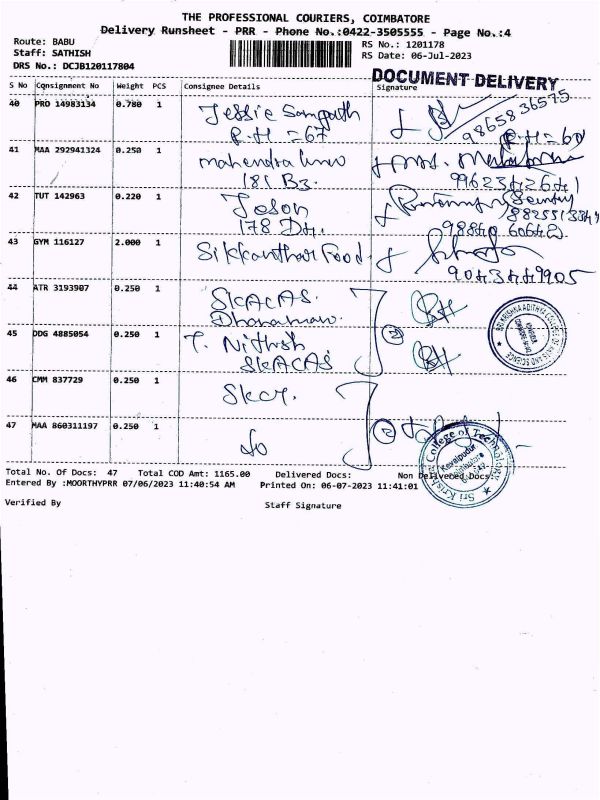 THE PROFESSIONAL COURIERS, COIMBATORE
Delivery Runsheet - PRR - Phone No.:0422-3505555 - Page No.:4
Route: BABU
RS No.: 1201178
Staff: SATHISH
RS Date: 06-Jul-2023
DRS No.: DCJB120117804
DOCUMENT DELIVERY
S No Consignment No Weight PCS Consignee Details Signature
40 PRO 14983134 0.780 1 Jessie Sampath
P.H = 67
9865836575
41 MAA 292941324 0.250 1 mahendra
181 B3.
42 TUT 142963 0.220 1 Jeson
178 D4.
43 GYM 116127 2.000 1 Sikkanthar Food.
9043449905
44 ATR 3193907 0.250 1 SKACAS.
45 DDG 4885054 0.250 1 T. Nithish
SKACAS
46 CMM 837729 0.250 1 Skct.
47 MAA 860311197 0.250 1
SRI KRISHNA ADITHYA COLLEGE OF ARTS AND SCIENCE
College of Technology
Kovaipudur
Sri Krish
Total No. Of Docs: 47 Total COD Amt: 1165.00 Delivered Docs: Non Delivered Docs:
Entered By :MOORTHYPRR 07/06/2023 11:40:54 AM Printed On: 06-07-2023 11:41:01
Verified By Staff Signature